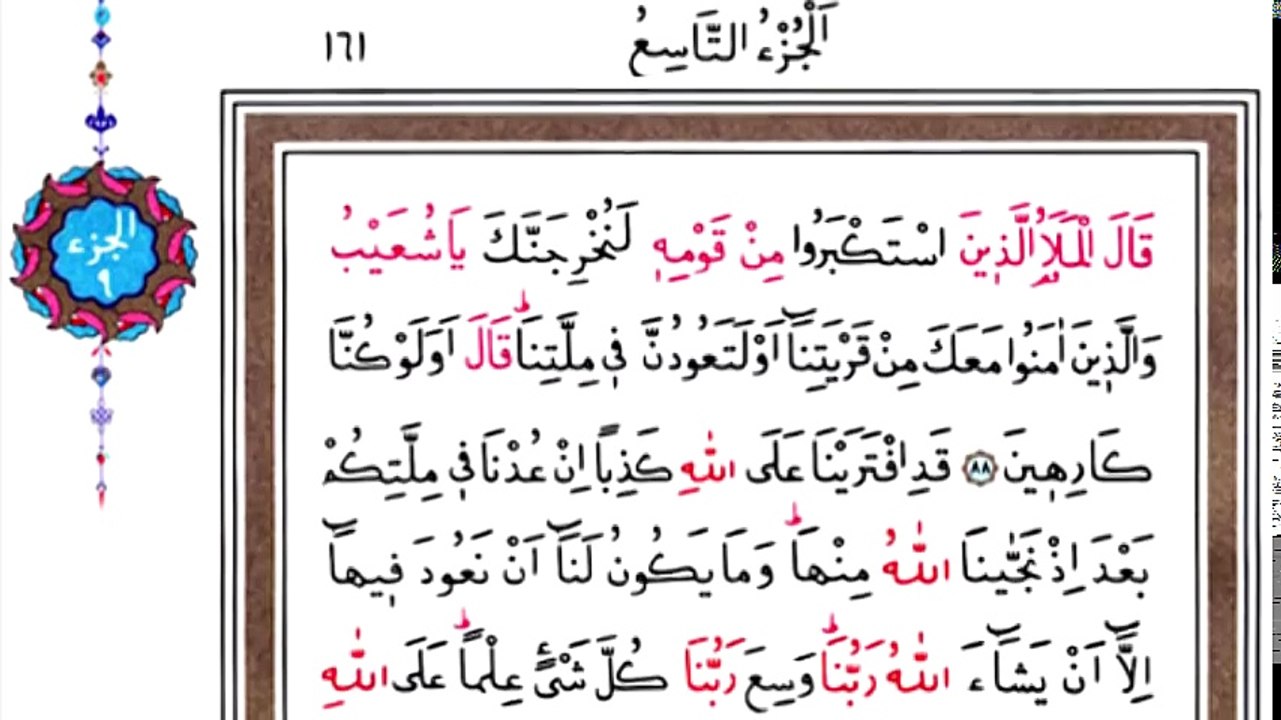 اَلْجُزْءُ التَّاسِعُ
١٦١
الجزء
٩
قَالَ الْمَلَاُ الَّذٖينَ اسْتَكْبَرُوا مِنْ قَوْمِهٖ لَنُخْرِجَنَّكَ يَا شُعَيْبُ
وَالَّذٖينَ اٰمَنُوا مَعَكَ مِنْ قَرْيَتِنَٓا اَوْ لَتَعُودُنَّ فٖى مِلَّتِنَاؕ قَالَ اَوَلَوْ كُنَّا
كَارِهٖينَ ﴿٨٨﴾ قَدِ افْتَرَيْنَا عَلَى اللّٰهِ كَذِبًا اِنْ عُدْنَا فٖى مِلَّتِكُمْ
بَعْدَ اِذْ نَجّٰينَا اللّٰهُ مِنْهَاؕ وَمَا يَكُونُ لَنَٓا اَنْ نَعُودَ فٖيهَٓا
اِلَّٓا اَنْ يَشَٓاءَ اللّٰهُ رَبُّنَاؕ وَسِعَ رَبُّنَا كُلَّ شَیْءٍ عِلْمًاؕ عَلَى اللّٰهِ